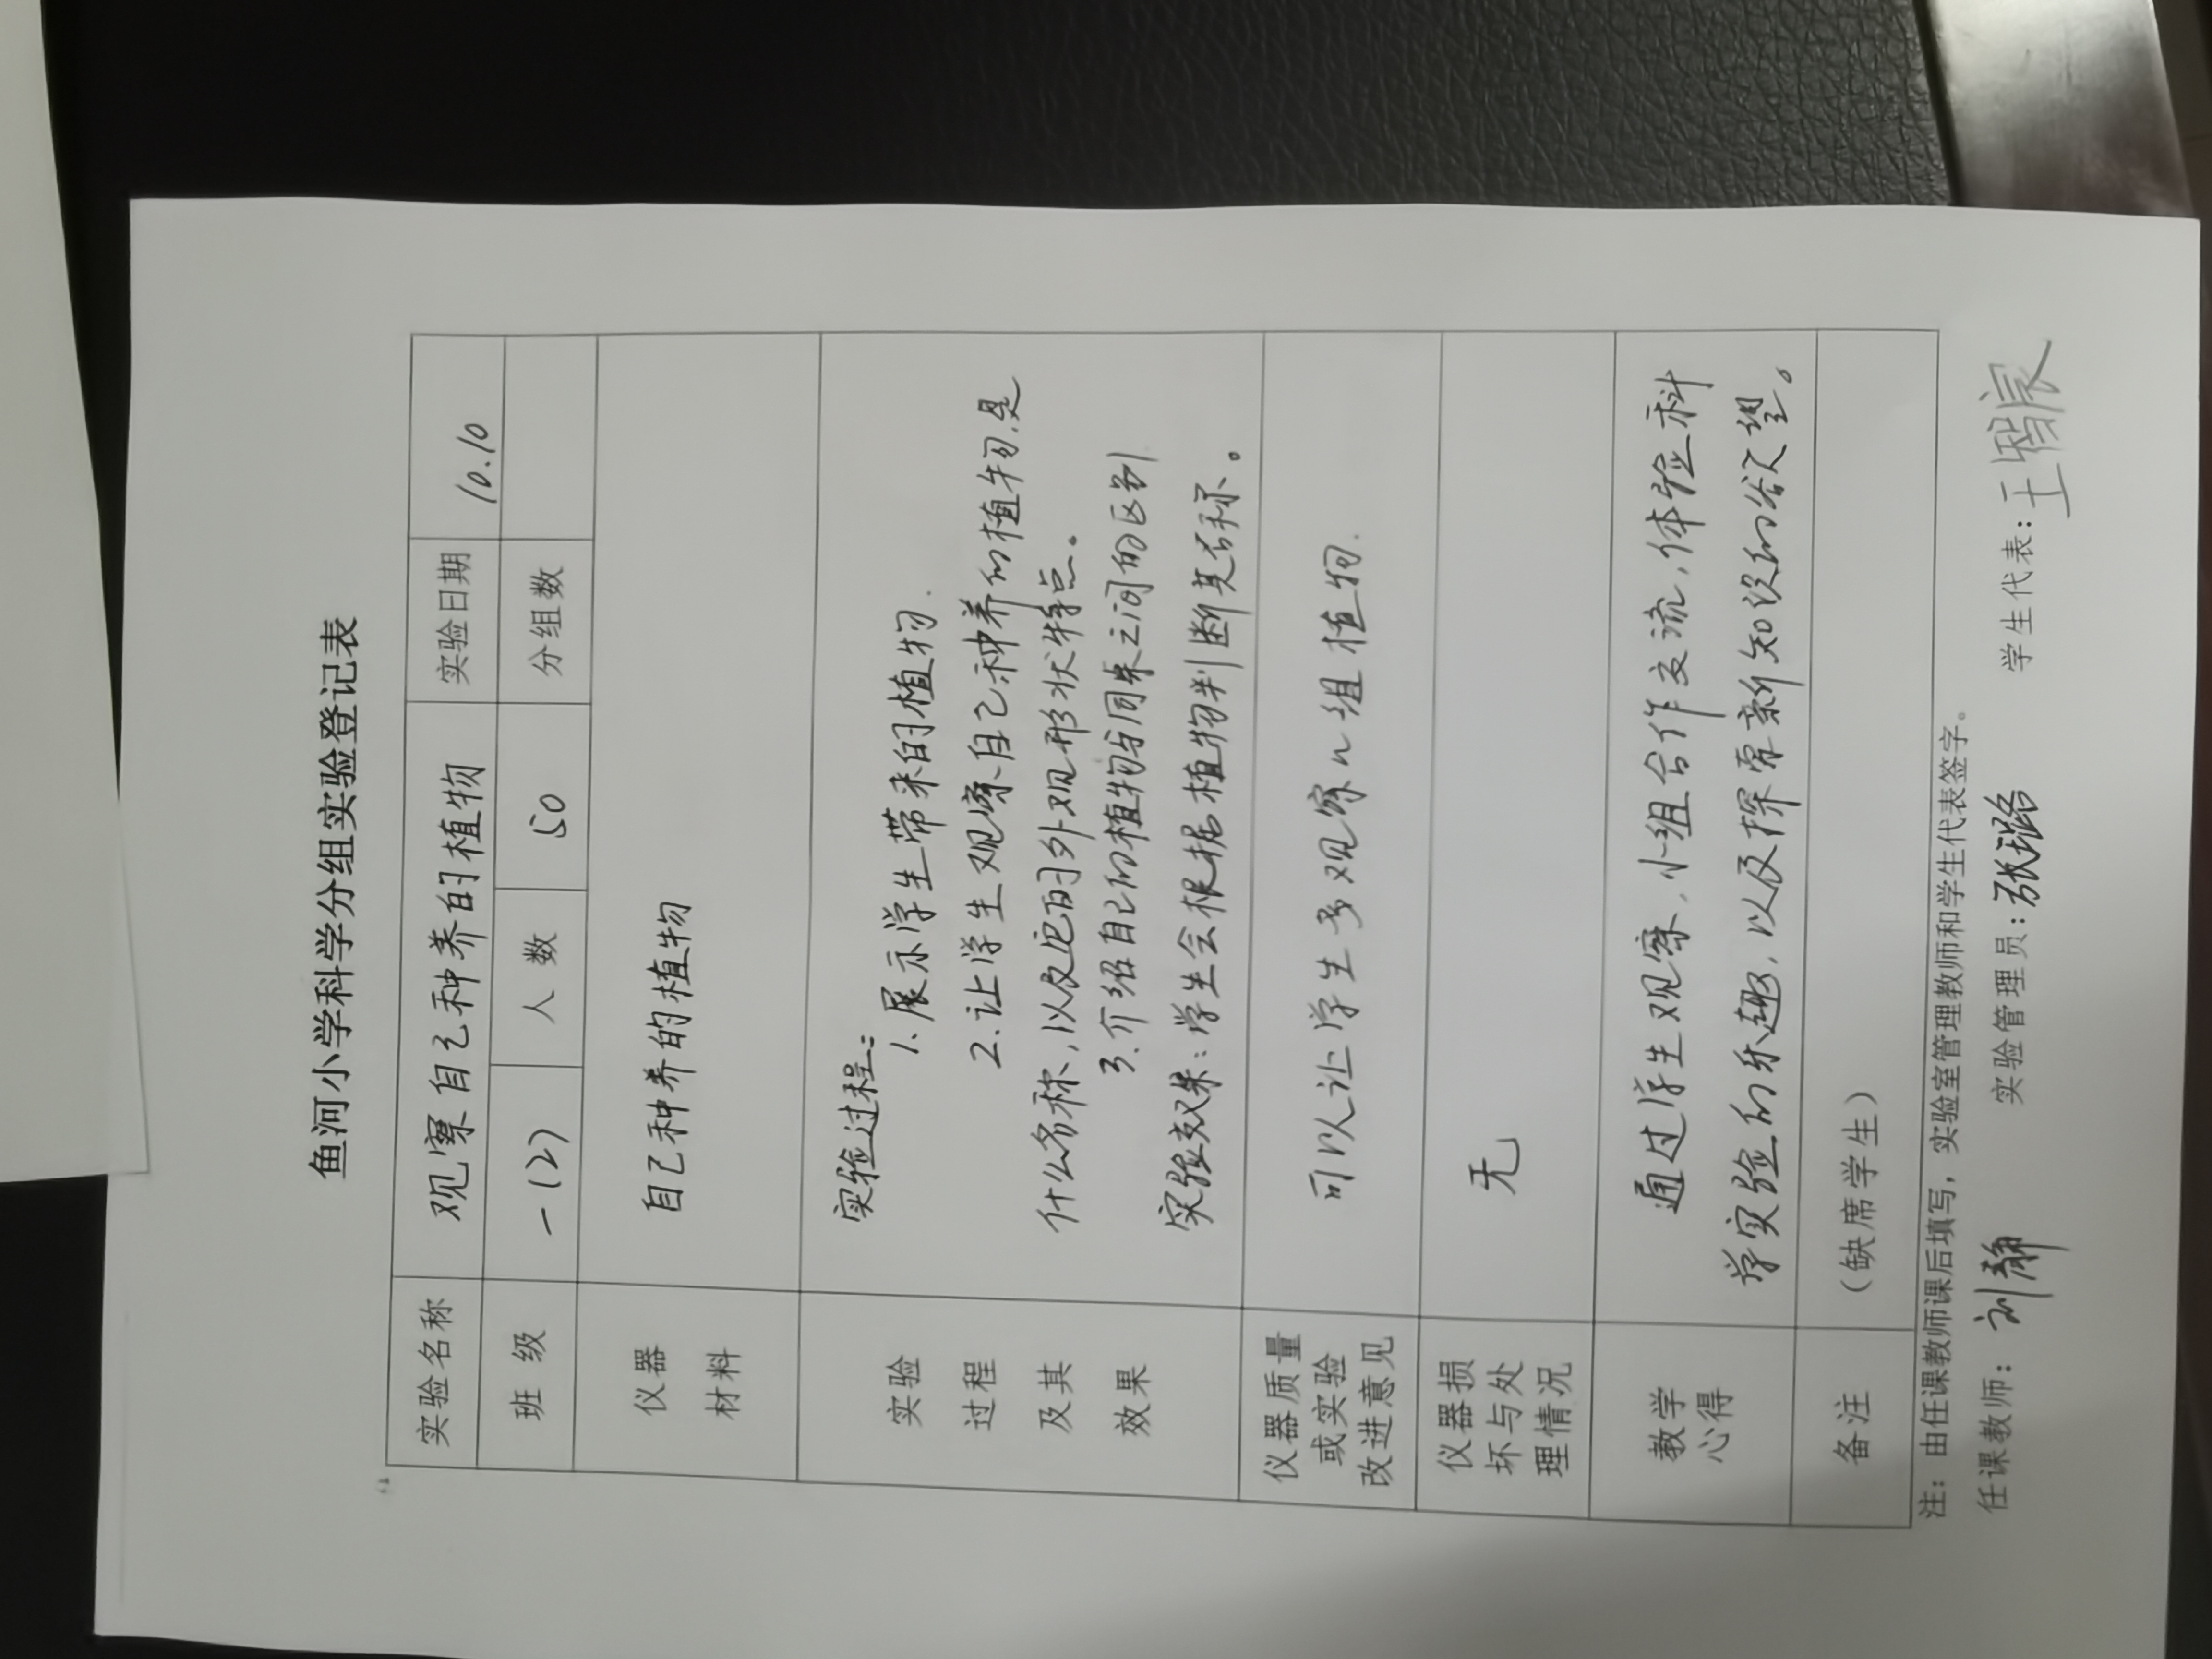 鱼河小学科学分组实验登记表
实验名称 观察自己种养的植物 实验日期 10.10
班 级 一(2) 人 数 50 分组数
仪器
材料
自己种养的植物
实验
过程
及其
效果
实验过程:
1.展示学生带来的植物.
2.让学生观察自己种养的植物,是
什么名称,以及它的外观形状特点。
3.介绍自己的植物与同桌之间的区别
实验效果:学生会根据植物判断其名称。
仪器质量
或实验
改进意见
可以让学生多观察几组植物.
仪器损
坏与处
理情况
无
教学
心得
通过学生观察,小组合作交流,体验科
学实验的乐趣,以及探索新知识的欲望。
备注 (缺席学生)
注:由任课教师课后填写,实验室管理教师和学生代表签字。
任课教师:刘静 实验管理员:张璐 学生代表:王